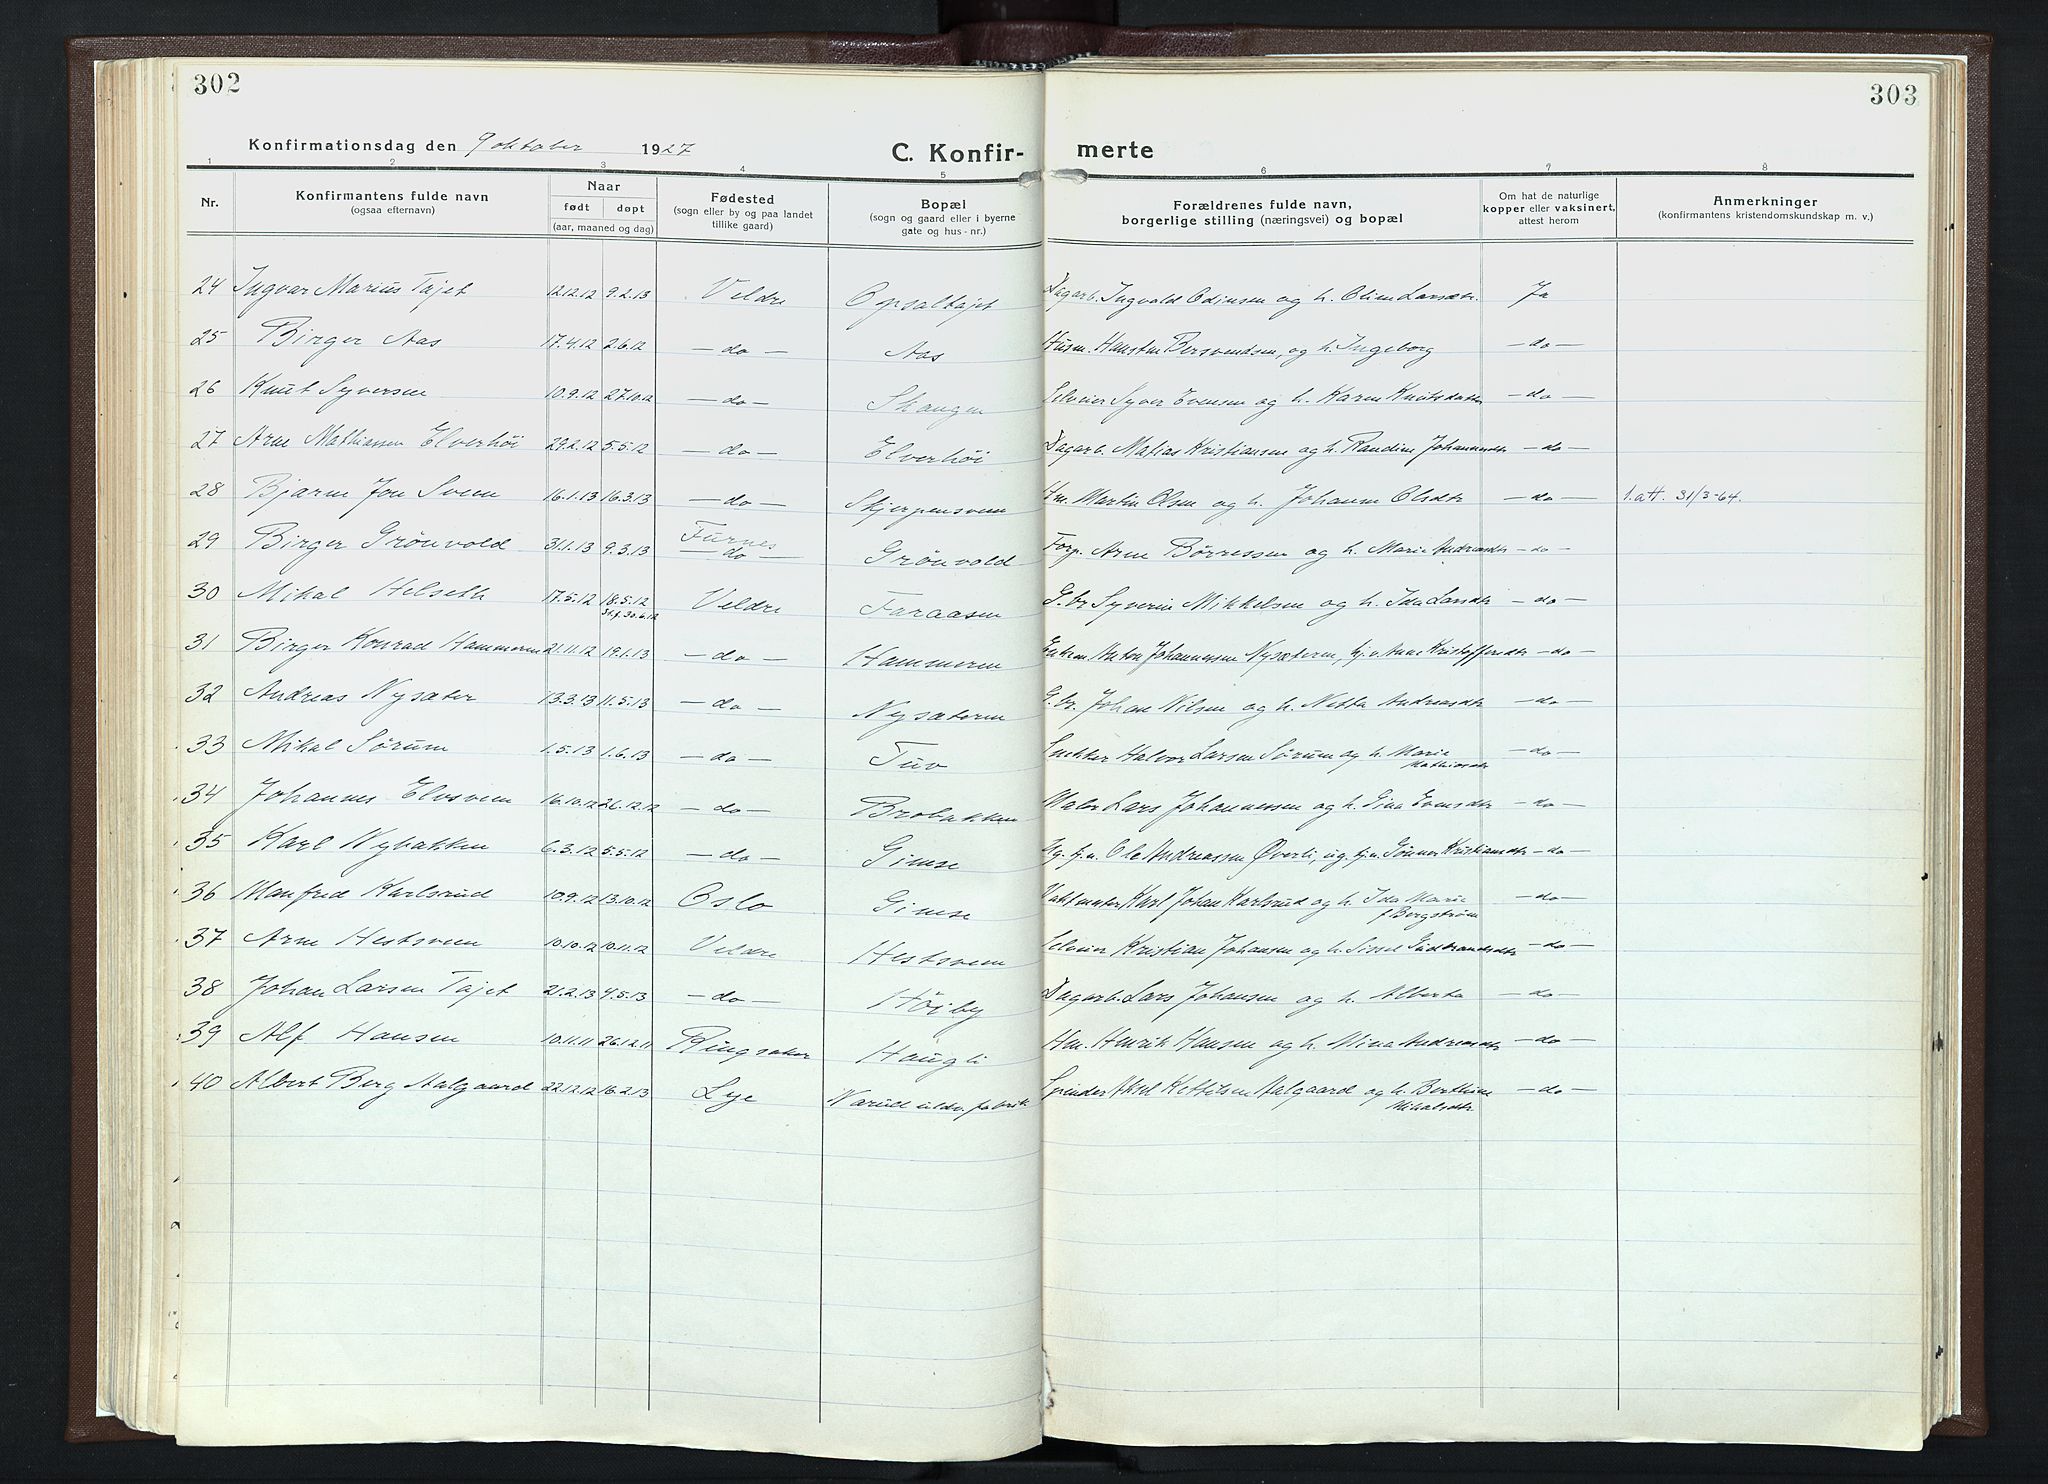 302
303
Konfirmationsdag den 9 oktober 1927
C. Konfir-
merte
1 2 3 4 5 6 7 8
Nr.
Konfirmantens fulde navn
(ogsaa efternavn)
Naar
født døpt
(aar, maaned og dag)
Fødested
(sogn eller by og paa landet
tillike gaard)
Bopæl
(sogn og gaard eller i byerne
gate og hus-nr.)
Forældrenes fulde navn,
borgerlige stilling (næringsvei) og bopæl
Om hat de naturlige
kopper eller vaksinert,
attest herom
Anmerkninger
(konfirmantens kristendomskundskap m. v.)
24 Ingvar Marius Tajet 12.12.12 9.2.13 Veldre Opsaltajet Dagarb. Ingvald Odinsen og h. Oline Larsdtr. Ja
25 Birger Aas 17.4.12 2.6.12 — do — Aas Husm. Bersvendsen, og h. Ingeborg — do —
26 Knut Syversen 10.9.12 27.10.12 — do — Skaugen Selveier Syver Evensen og h. Karen Knutsdatter — do —
27 Arne Mathiassen Elverhöi 29.2.12 5.5.12 — do — Elverhöi Dagarb. Matias Kristiansen og h. Randine Johannesdtr — do —
28 Bjarne Jon Sveen 16.1.13 16.3.13 — do — Skjerpensveen Hm. Martin Olsen og h. Johanne Olsdtr — do — 1. att. 31/3-64.
29 Birger Grönvold 31.1.13 9.3.13 Furnes — do — Grönvold Forp. Arne Börressen og h. Marie Andreasdtr — do —
30 Mikal Helseth 17.5.12 18.5.12 Veldre Faraasen G.br Syverin Mikkelsen og h. Ida Larsdtr — do —
st.f. 30.6.12
31 Birger Konrad Hammeren 21.11.12 19.1.13 — do — Hammeren Enkem. Anton Johannessen Nysæteren, hj.v. Anne Kristoffersdtr — do —
32 Andreas Nysæter 13.3.13 11.5.13 — do — Nysæteren G.br. Johan Nilsen og h. Netta Andreasdtr — do —
33 Mikal Sørum 1.5.13 1.6.13 — do — Tuv Snekker Halvor Larsen Sörum og h. Marie — do —
Mathiasdtr
34 Johannes Elvsveen 16.10.12 26.12.12 — do — Brobakken Maler Lars Johannessen og h. Gina Evensdtr — do —
35 Karl Nybakken 6.3.12 5.5.12 — do — Gimse Ug. tj.u. Ole Andreassen Øverli, ug. tj.v. Gunner Kristiansdtr — do —
36 Manfred Karlsrud 10.9.12 13.10.12 Oslo Gimse Vaktmester Karl Johan Karlsrud og h. Ida Marie — do —
f. Bergström
37 Arne Hestsveen 10.10.12 10.11.12 Veldre Hestsveen Selveier Kristian Johansen og h. Sissel Gudbrandsdtr — do —
38 Johan Larsen Tajet 21.2.13 4.5.13 — do — Höiby Dagarb. Lars Johansen og h. Alberte — do —
39 Alf Hansen 10.11.11 26.12.11 Ringsaker Haugli Hm. Henrik Hansen og h. Mina Andreasdtr — do —
40 Albert Berg Aalgaard 22.12.12 16.2.13 Lye Narud uldv. fabrik Spinder Aksel Kettilsen Aalgaard og h. Berthine — do —
Mikalsdtr